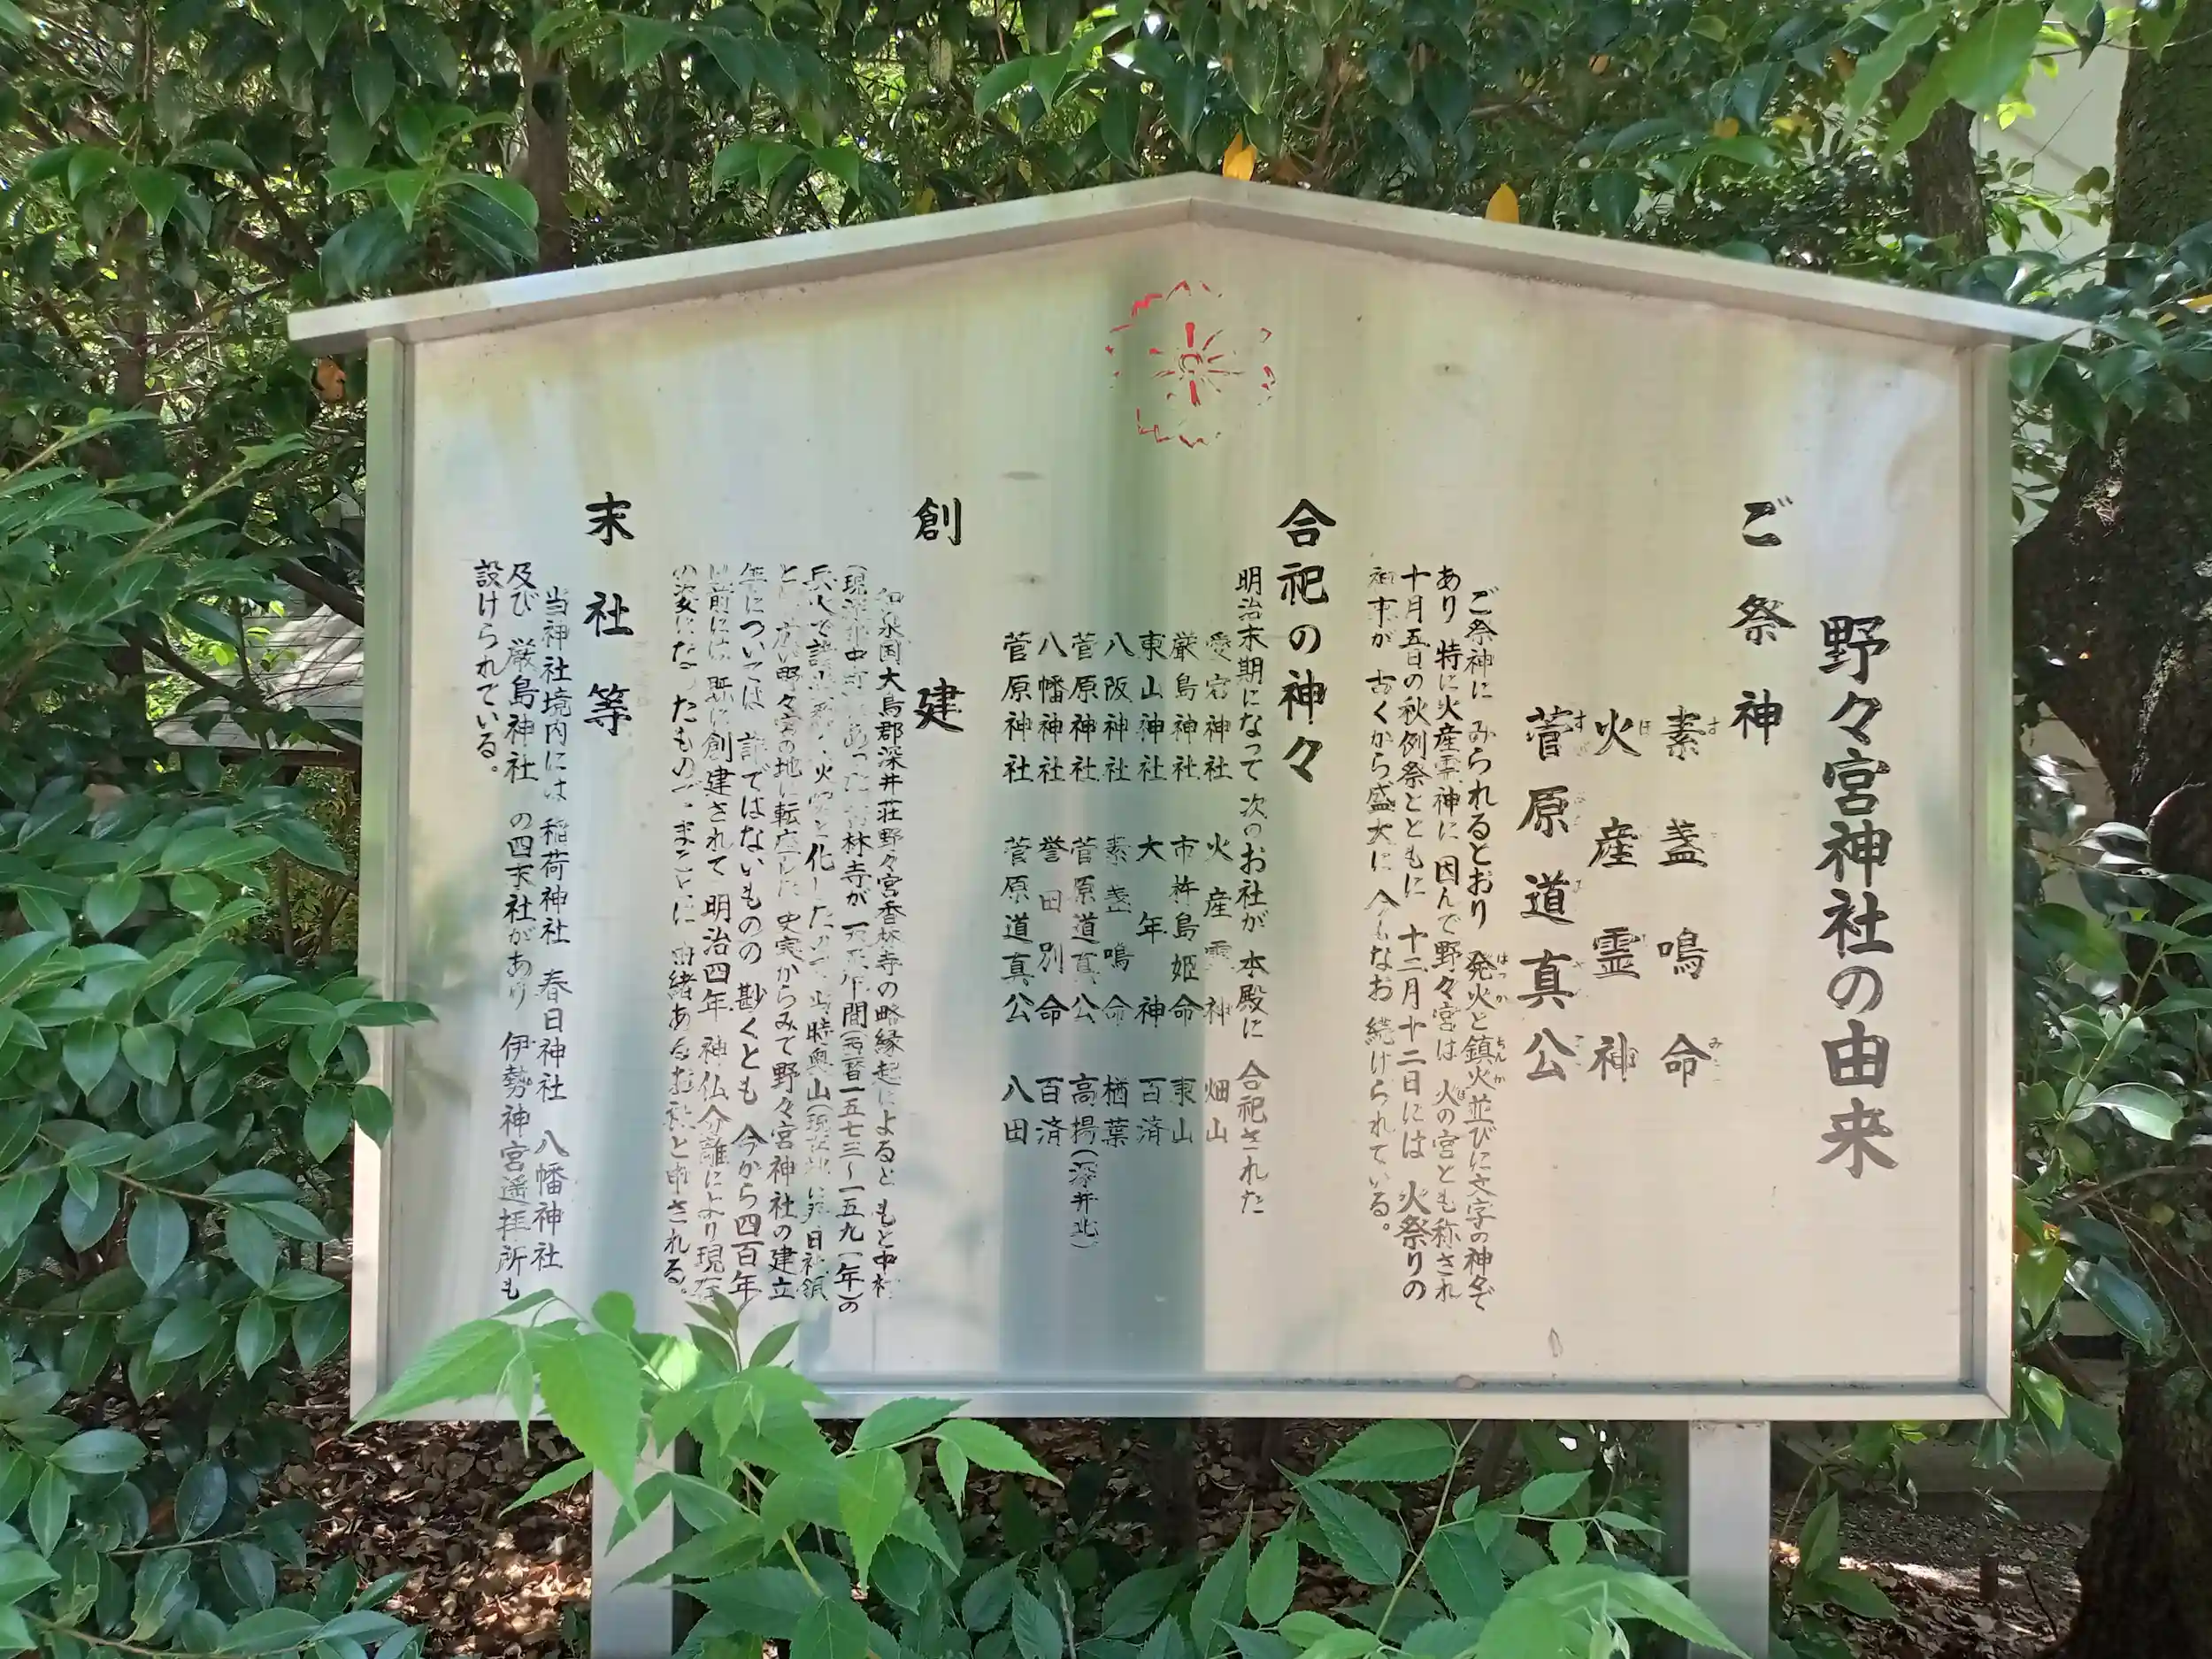 野々宮神社の由来
ご祭神
素盞鳴命
火産霊神
菅原道真公
ご祭神に みられるとおり 発火と鎮火並びに文字の神々で
あり 特に火産霊神に因んで野々宮は 火の宮とも称され
十月五日の秋例祭とともに 十二月十二日には 火祭りの
神事が 古くから盛大に 今もなお 続けられている。
合祀の神々
明治末期になって 次のお社が 本殿に 合祀された
愛宕神社 火産霊神 畑山
厳島神社 市杵島姫命 東山
東山神社 大年神 百済
八阪神社 素盞鳴命 楢葉
菅原神社 菅原道真公 高揚(深井北)
八幡神社 誉田別命 百済
菅原神社 菅原道真公 八田
創建
和泉国大鳥郡深井荘野々宮香林寺の略縁起によると もと中村
(現深井中町)にあった 香林寺が 天正年間(西暦一五七三〜一五九一年)の
兵火で 諸 火 と化した 当時奥山(現在地)に 春日社領
と 広い野々宮の地に転座した 史実からみて野々宮神社の建立
年については 詳ではないものの 尠くとも 今から四百年
以前には 既に創建されて 明治四年 神仏分離により現在
の姿になったもので まことに 由緒あるお社と申される。
末社等
当神社境内には 稲荷神社 春日神社 八幡神社
及び 厳島神社 の四末社があり 伊勢神宮遥拝所も
設けられている。